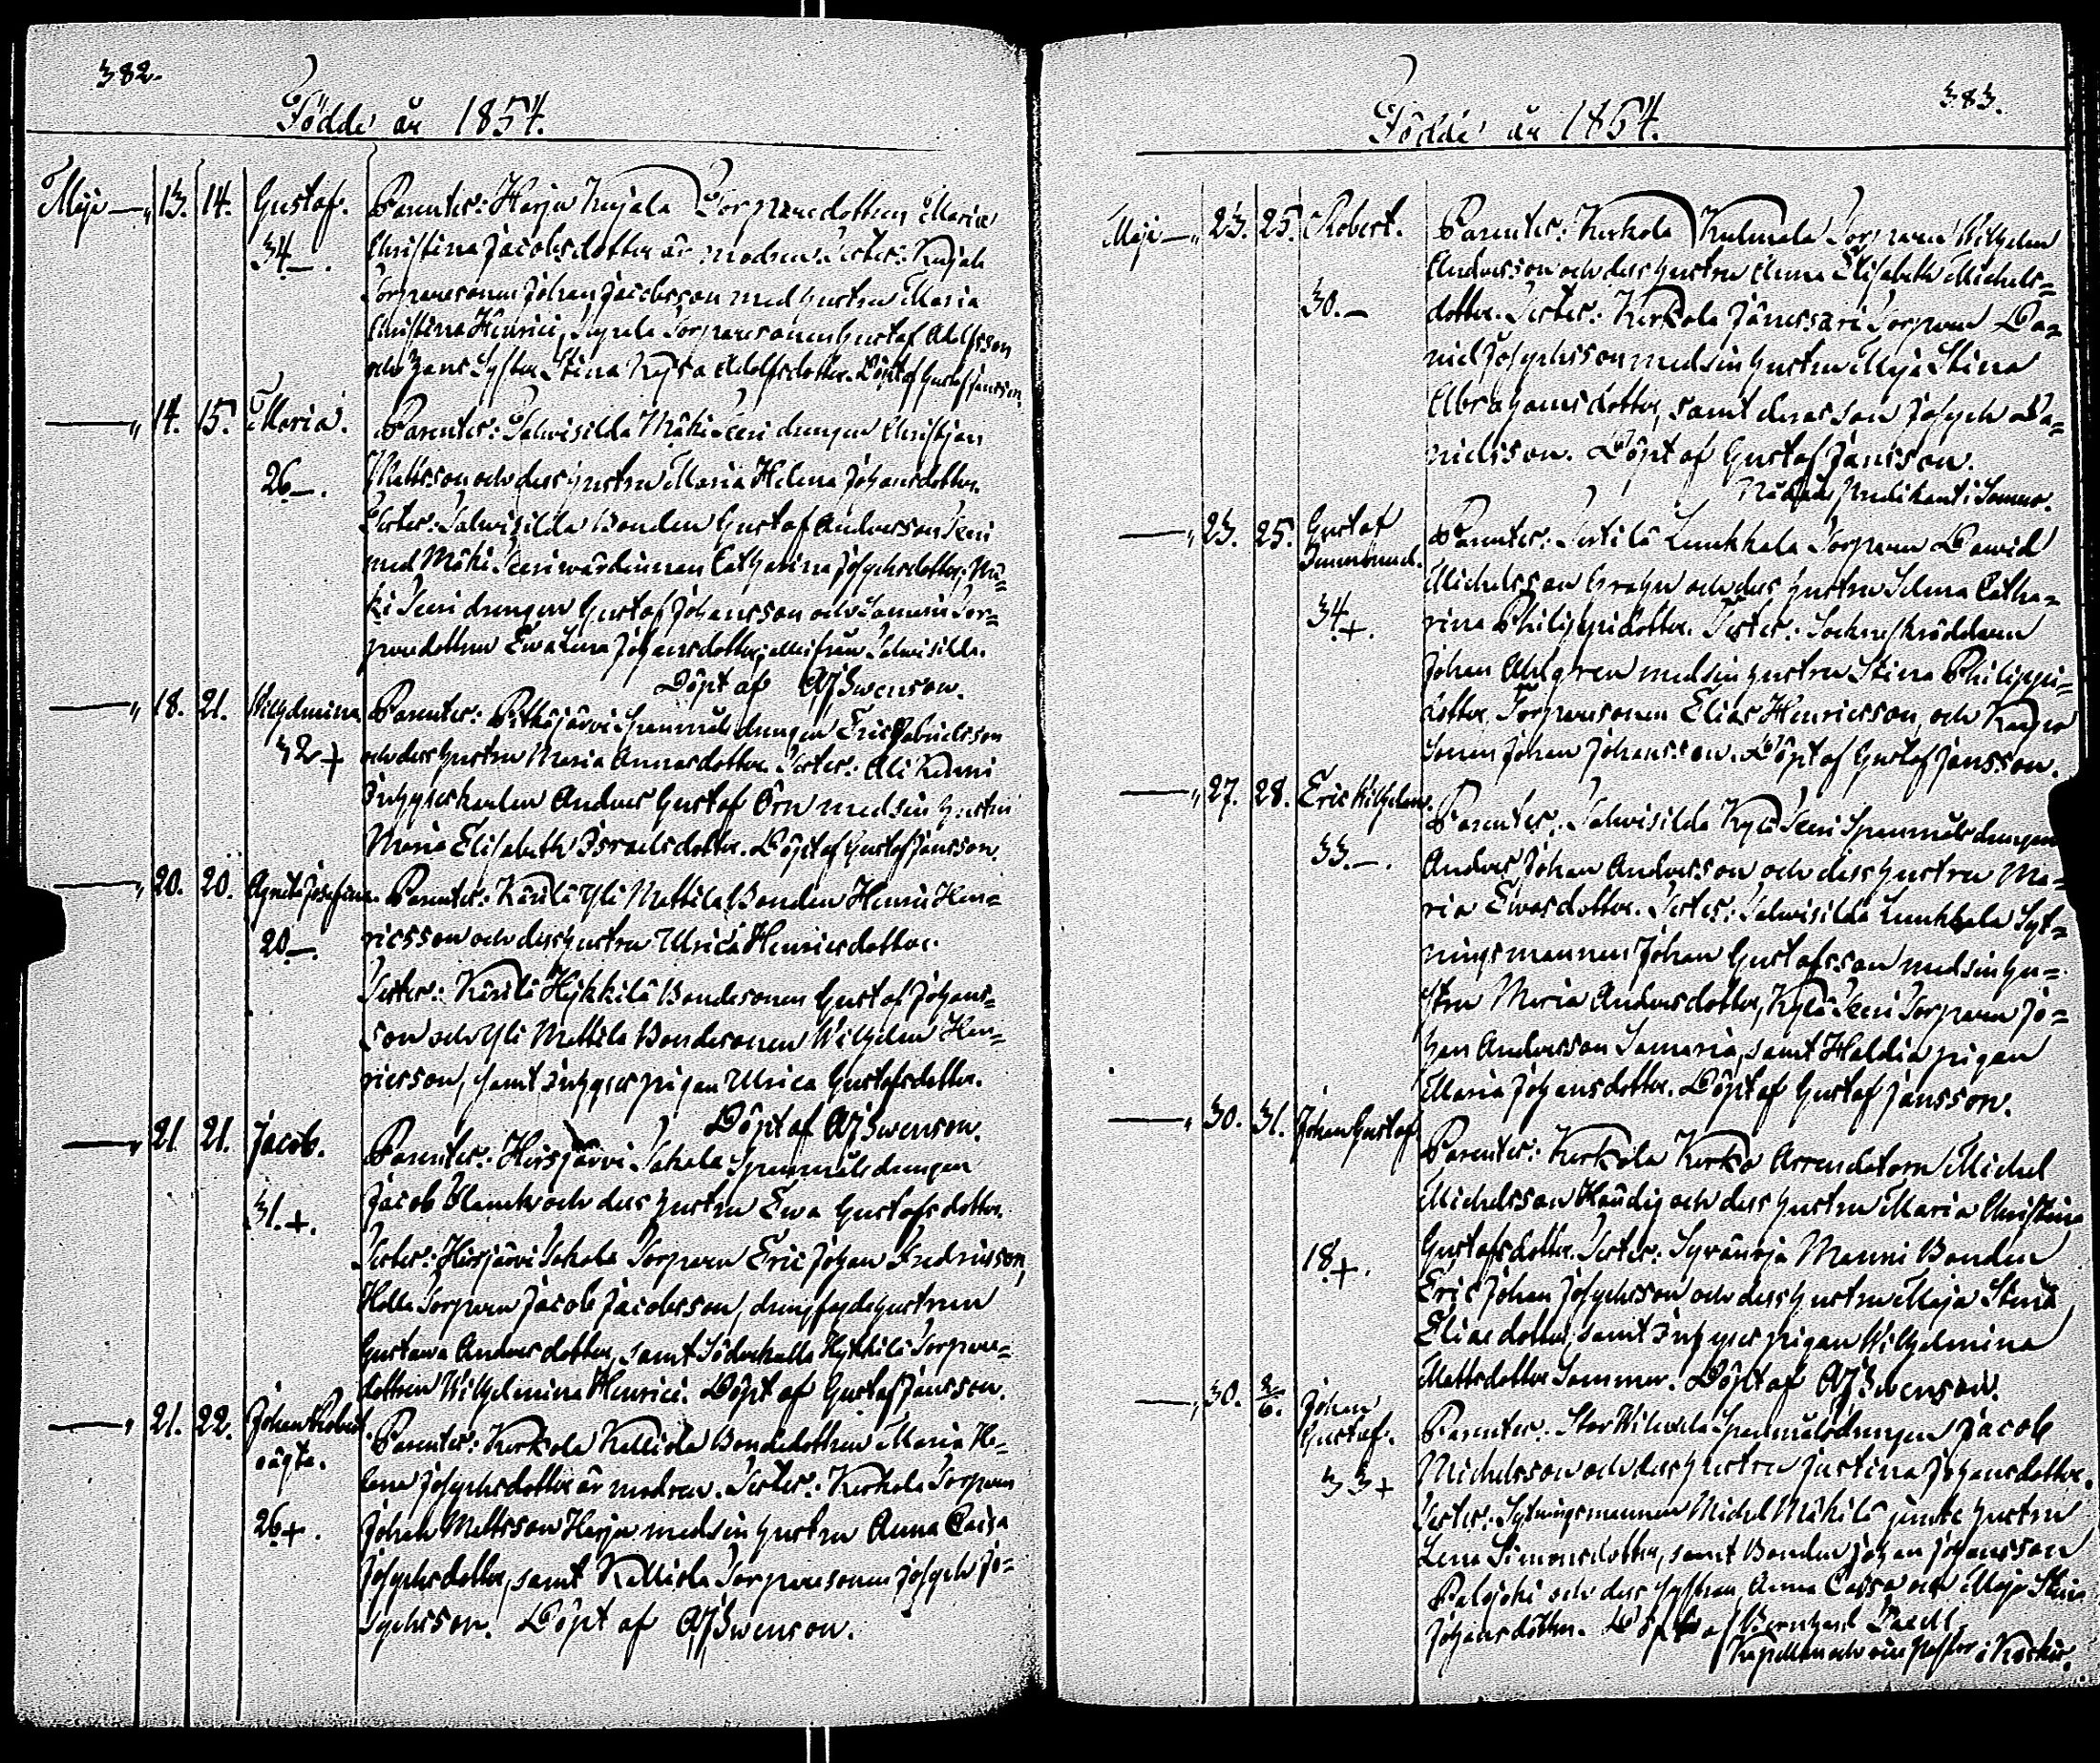 382.
Födde år 1854.
Maje — " 13. 14. Gustaf. Parenter: Harju Kujala Torparedottren Maria
34 —. Christina Jacobsdotter är modren. Testes: Kujala
Torparesonen Johan Jacobsson med hustru Maria
Christina Henrici, Torparesonen Gustaf Adolfsson
och hans Syster Stina Kajsa Adolfsdotter. Döpt af Gustaf Jansson.
— " 14. 15. Maria. Parenter: Salwisilda Mäki Seri drengen Christjan
26 —. Mattsson och dess hustru Maria Helena Johansdotter.
Testes: Salwisilda Bonden Gustaf Andersson Seri
med Mäki Seri wärdinnan Catharina Josephsdotter, Mä-
ki Seri drengen Gustaf Johansson och Tor-
paredottren Ewa Lena Johansdotter, alla från Salwisilda.
Döpt af AJSwenson.
— " 18. 21. Wilhelmina Parenter: Pitkäjärvi Spanmåls drengen Eric Gabrielsson
32 + och dess hustru Maria Annasdotter. Testes: Ali
Inhyseskarlen Anders Gustaf Örn med sin hustru
Maria Elisabeth Israelsdotter. Döpt af Gustaf Jansson.
— " 20. 20. Agneta Josefina. Parenter: Kärilä Yli Mattila Bonden Henric Hen-
20 —. ricsson och dess hustru Ulrica Henricsdotter.
Testes: Kärilä Hykkilä Bondesonen Gustaf Johans-
son och Yli Mattila Bondesonen Wilhelm Hen-
ricsson, samt Inhyses pigan Ulrica Gustafsdotter.
Döpt af AJSwenson.
— " 21. 21. Jacob. Parenter: Hirsjärvi Sakala Spanmåls drengen
31. +. Jacob och dess hustru Ewa Gustafsdotter.
Testes: Hirsjärvi Sakala Torparen Eric Johan Fredricsson,
Torparen Jacob Jacobsson, hustrun
Gustava Andersdotter, samt Hykkilä Torpare-
dottren Wilhelmina Henrici. Döpt af Gustaf Jansson.
— " 21. 22. Johan Robert Parenter: Kerkola Kalliola Bondedottren Maria He-
oägta. lena Josephsdotter är modren. Testes: Kerkola Torparen
26 +. Johan Mattsson Harju med sin hustru Anna Caisa
Josephsdotter, samt Kalliola Torparesonen Joseph Jo-
sephsson. Döpt af AJSwenson.
383.
Födde år 1854.
Maje — " 23. 25. Robert. Parenter: Kerkola Kulmala Torparen Wilhelm
Andersson och dess hustru Anna Elisabeth Michels-
30. — dotter. Testes: Kerkola Jänessari Torparen Da-
niel Josephsson med sin hustru Maja Stina
Abrahamsdotter, samt deras son Joseph Da-
nielsson. Döpt af Gustaf Jansson.
Nådårs predikant i Somero.
— " 23. 25. Gustaf Parenter: Lunkkala Torparen Dawid
Immanuel. Michelsson och dess hustru Catha-
34 +. rina Philippidotter. Testes: Sockneskräddaren
Johan Ahlgren med sin hustru Stina Philippi-
dotter, Torparesonen Elias Henricsson, och
sonen Johan Johansson. Döpt af Gustaf Jansson.
— " 27. 28. Eric Wilhelm. Parenter: Salwisilda Kylä Seri Spanmåls drengen
33. —. Anders Johan Andersson och dess hustru Ma-
ria Ewasdotter. Testes: Salwisilda Lunkkala Syt-
ningsmannen Johan Gustafsson med sin hu-
stru Maria Andersdotter, Kylä Seri Torparen Jo-
han Andersson samt pigan
Maria Johansdotter. Döpt af Gustaf Jansson.
— " 30. 31. Johan Gustaf Parenter: Kerkola Kerko Arrendatorn Michel
Michelsson och dess hustru Maria Christina
18 +. Gustafsdotter. Testes: Syvänoja Manni Bonden
Eric Johan Josephsson och dess hustru Maja Stina
Eliasdotter, samt Inhyses pigan Wilhelmina
Mattsdotter Sommer. Döpt af AJSwenson.
— " 30. 2/6. Johan Parenter: Spanmålsdrengen Jacob
Gustaf. Michelsson och dess hustru Justina Johansdotter.
33 + Testes: Sytningsmannen Michel Mäkilä jemte hustru
Lena Simonsdotter, samt Bonden Johan Johansson
Palojoki och dess systrar, Anna Caisa och Maja Stina
Johansdöttrar. Döpt af Bernhard
Kapellan och vice Pastor i